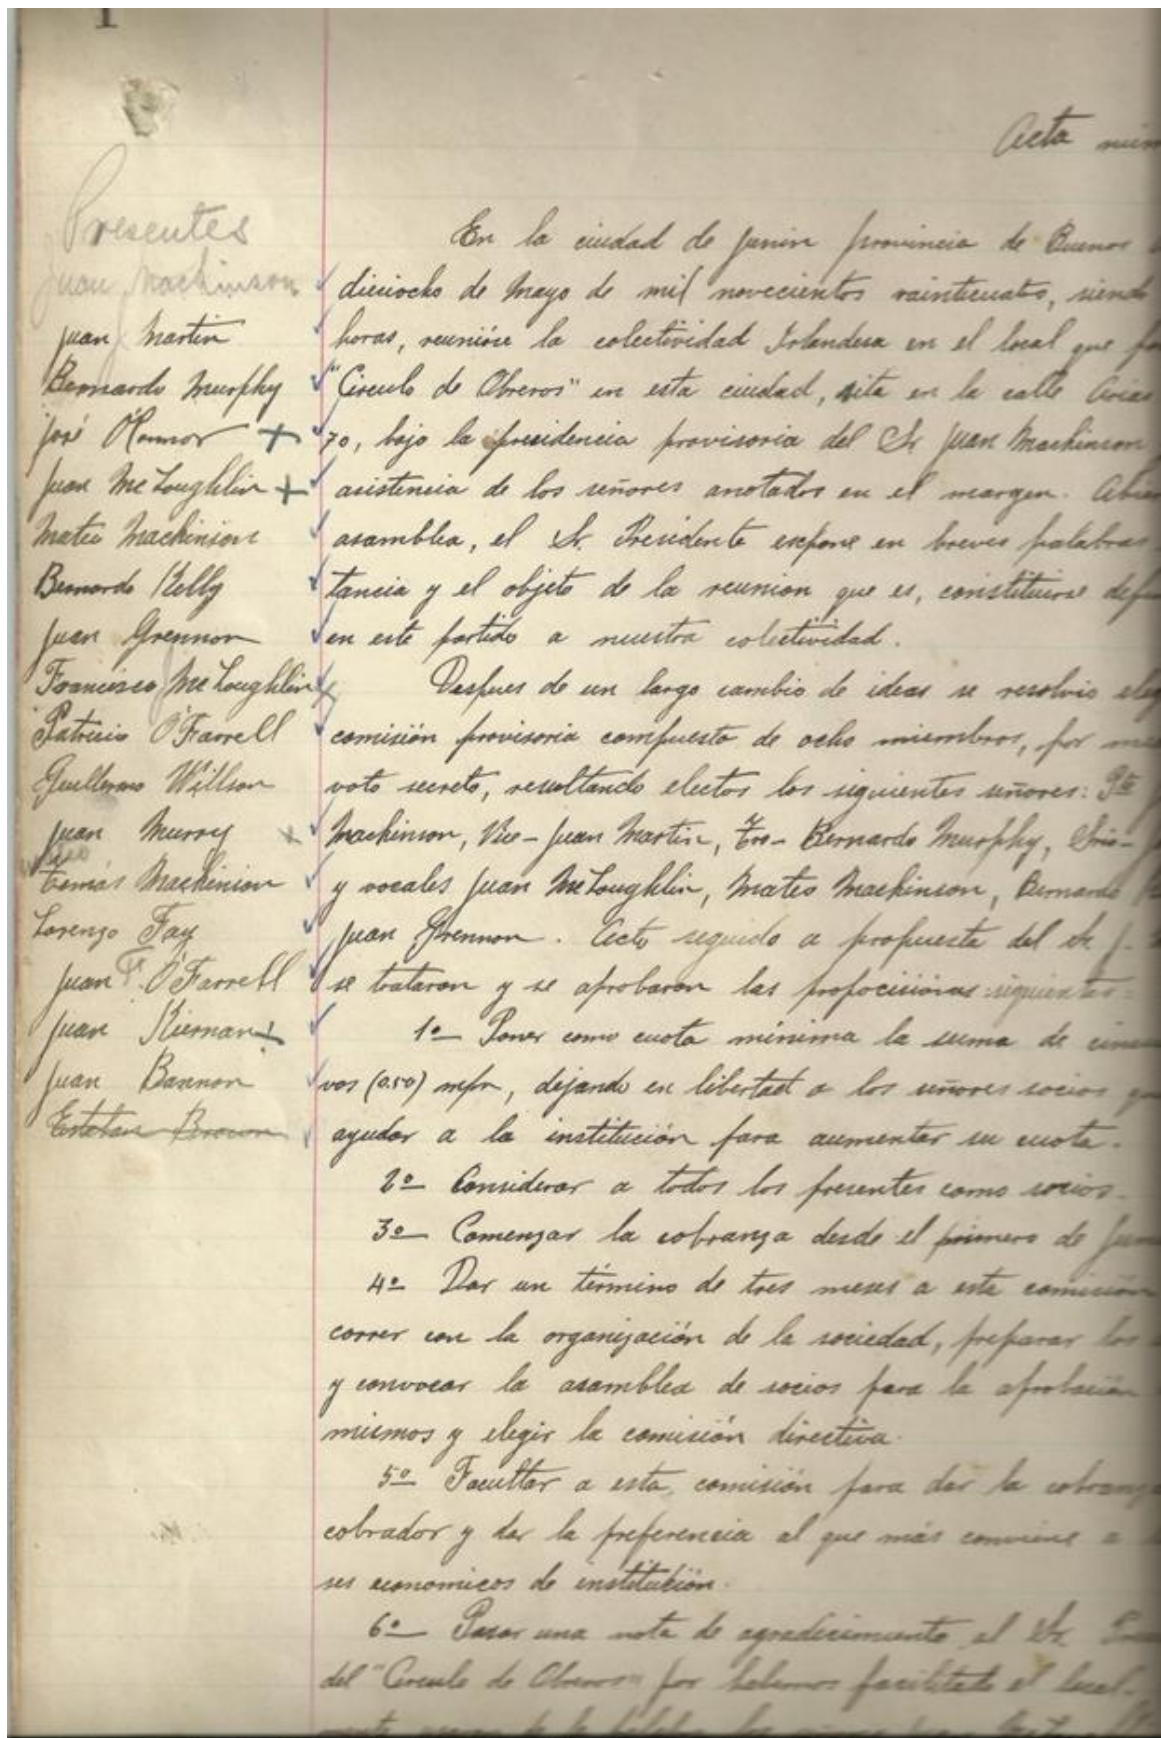 1
Acta núm
Presentes
Juan Mackinson
Juan Martin
Bernardo Murphy
José O'Connor +
Juan McLoughlin +
Mateo Mackinson
Bernardo Kelly
Juan Grennon
Francisco McLoughlin x
Patricio O'Farrell
Guillermo Willson
Juan Murray x
Tomás Mackinson
Lorenzo Fay
Juan F. O'Farrell
Juan Kiernan +
Juan Bannon
Esteban Brown
En la ciudad de Junin provincia de Buenos
dieciocho de Mayo de mil novecientos vainticuatro, siendo
horas, reunióse la colectividad Irlandesa en el local que
"Circulo de Obreros" en esta ciudad, sita en la calle Arias
70, bajo la presidencia provisoria del Sr. Juan Mackinson
asistencia de los señores anotados en el margen. Abier
asamblea, el Sr. Presidente expone en breves palabras
tancia y el objeto de la reunion que es, constituirse def
en este partido a nuestra colectividad.
Despues de un largo cambio de ideas se resolvio eleg
comisión provisoria compuesta de ocho miembros, por me
voto secreto, resultando electos los siguientes señores: Pte
Mackinson, Vice - Juan Martin, Tro - Bernardo Murphy, Srio -
y vocales Juan McLoughlin, Mateo Mackinson, Bernardo
Juan Grennon. Acto seguido a propuesta del Sr J.
se trataron y se aprobaron las propocisiones siguientes:
1º - Poner como cuota minima la suma de
vos (0.50) m/n, dejando en libertad a los señores socios
ayudar a la institución para aumentar su cuota.
2º - Considerar a todos los presentes como socios.
3º - Comenzar la cobranza desde el primero de Jun
4º - Dar un término de tres meses a esta comisión
correr con la organización de la sociedad, preparar los
y convocar la asamblea de socios para la aprobación
mismos y elegir la comisión directiva.
5º Facultar a esta comisión para dar la cobranza
cobrador y dar la preferencia al que más conviene a
ses economicos de institución.
6º - Pasar una nota de agradecimiento al Sr.
del "Circulo de Obreros" por habernos facilitado el local.